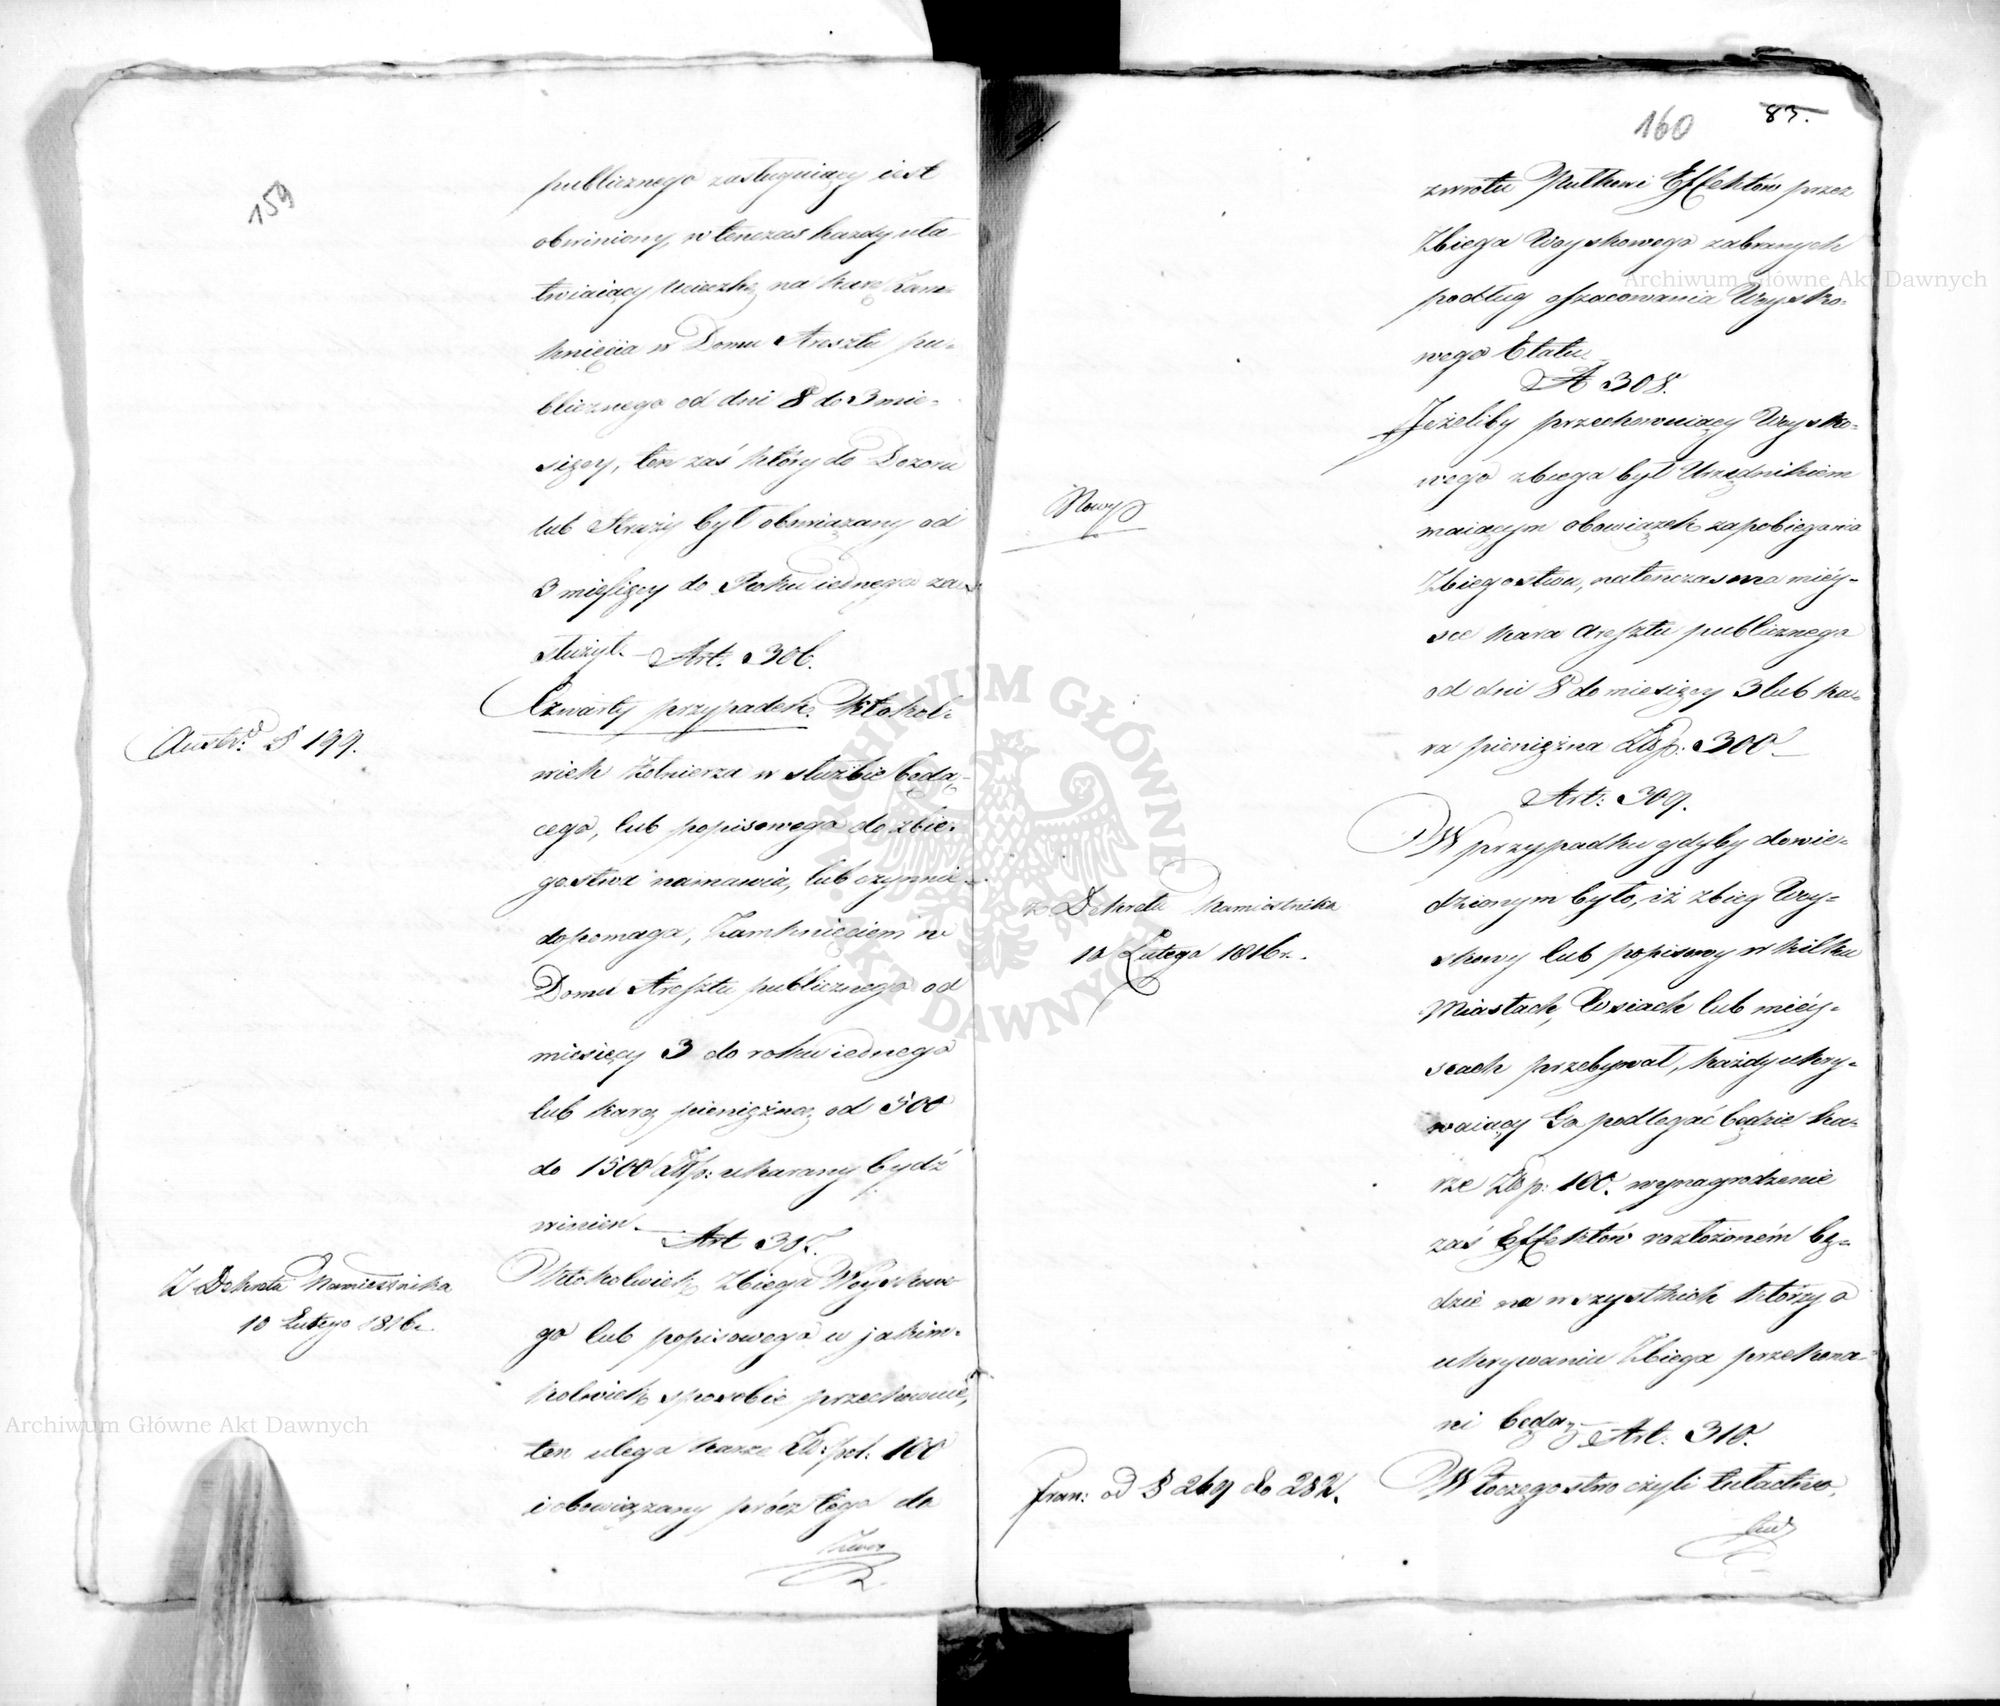 159
publicznego zasługuiący iest
obwiniony, wtenczas każdy uła
twiaiący ucieczkę na karę Zam-
knięcia w Domu Aresztu pu-
blicznego od dni 8 do 3 mie-
sięcy, ten zaś który do Dozoru
lub Straży był obowiązany od
3 mięsięcy do Roku iednego za-
służył. — Art: 306.
Austr: § 199.
Czwarty przypadek. Ktokol-
wiek żołnierza w służbie będą-
cego, lub popisowego do zbie-
gostwa namawia, lub czynnie
dopomaga, Zamknięciem w
Domu Aresztu publicznego od
miesięcy 3 do roku iednego
lub karą pieniężną od 500
do 1500 Złp: ukarany bydź
winien. — Art 307.
Z Dekretu Namiestnika
10 Lutego 1816 r.
Ktokolwiek Zbiega Woyskowe
go lub popisowego w jakim-
kolwiek sposobie przechowuie,
ten ulega karze Zł: pol: 100
i obowiązany prócz tego do
zwro
160
83.
zwrotu Pułkowi Effektów przez
Zbiega Woyskowego zabranych
podług oszacowania Woysko-
wego Etatu
A 308.
Nowy
Jeżeliby przechowuiący Woysko-
wego zbiega był Urzędnikiem
maiącym obowiązek zapobiegania
Zbiegostwu, natenczas ma miéy-
sce kara Aresztu publicznego
od dni 8 do miesięcy 3 lub ka-
ra pieniężna Złp: 300
Art: 309.
W przypadku gdyby dowie-
dzionym było, iż zbieg Woy-
skowy lub popisowy w kilku
Miastach, Wsiach lub miéy-
scach przebywał, każdy ukry-
waiący Go podlegać będzie ka-
rze Złp: 100. wynagrodzenie
zaś Effektów rozłożoném bę-
dzie na wszystkich którzy o
ukrywaniu Zbiega przekona-
ni będą — Art: 310.
z Dekretu Namiestnika
10 Lutego 1816 r.
fran: od § 269 do 282.
Włoczęgostwo czyli tułactwo,
Archiwum Główne Akt Dawnych
Archiwum Główne Akt Dawnych
ARCHIWUM GŁÓWNE AKT DAWNYCH